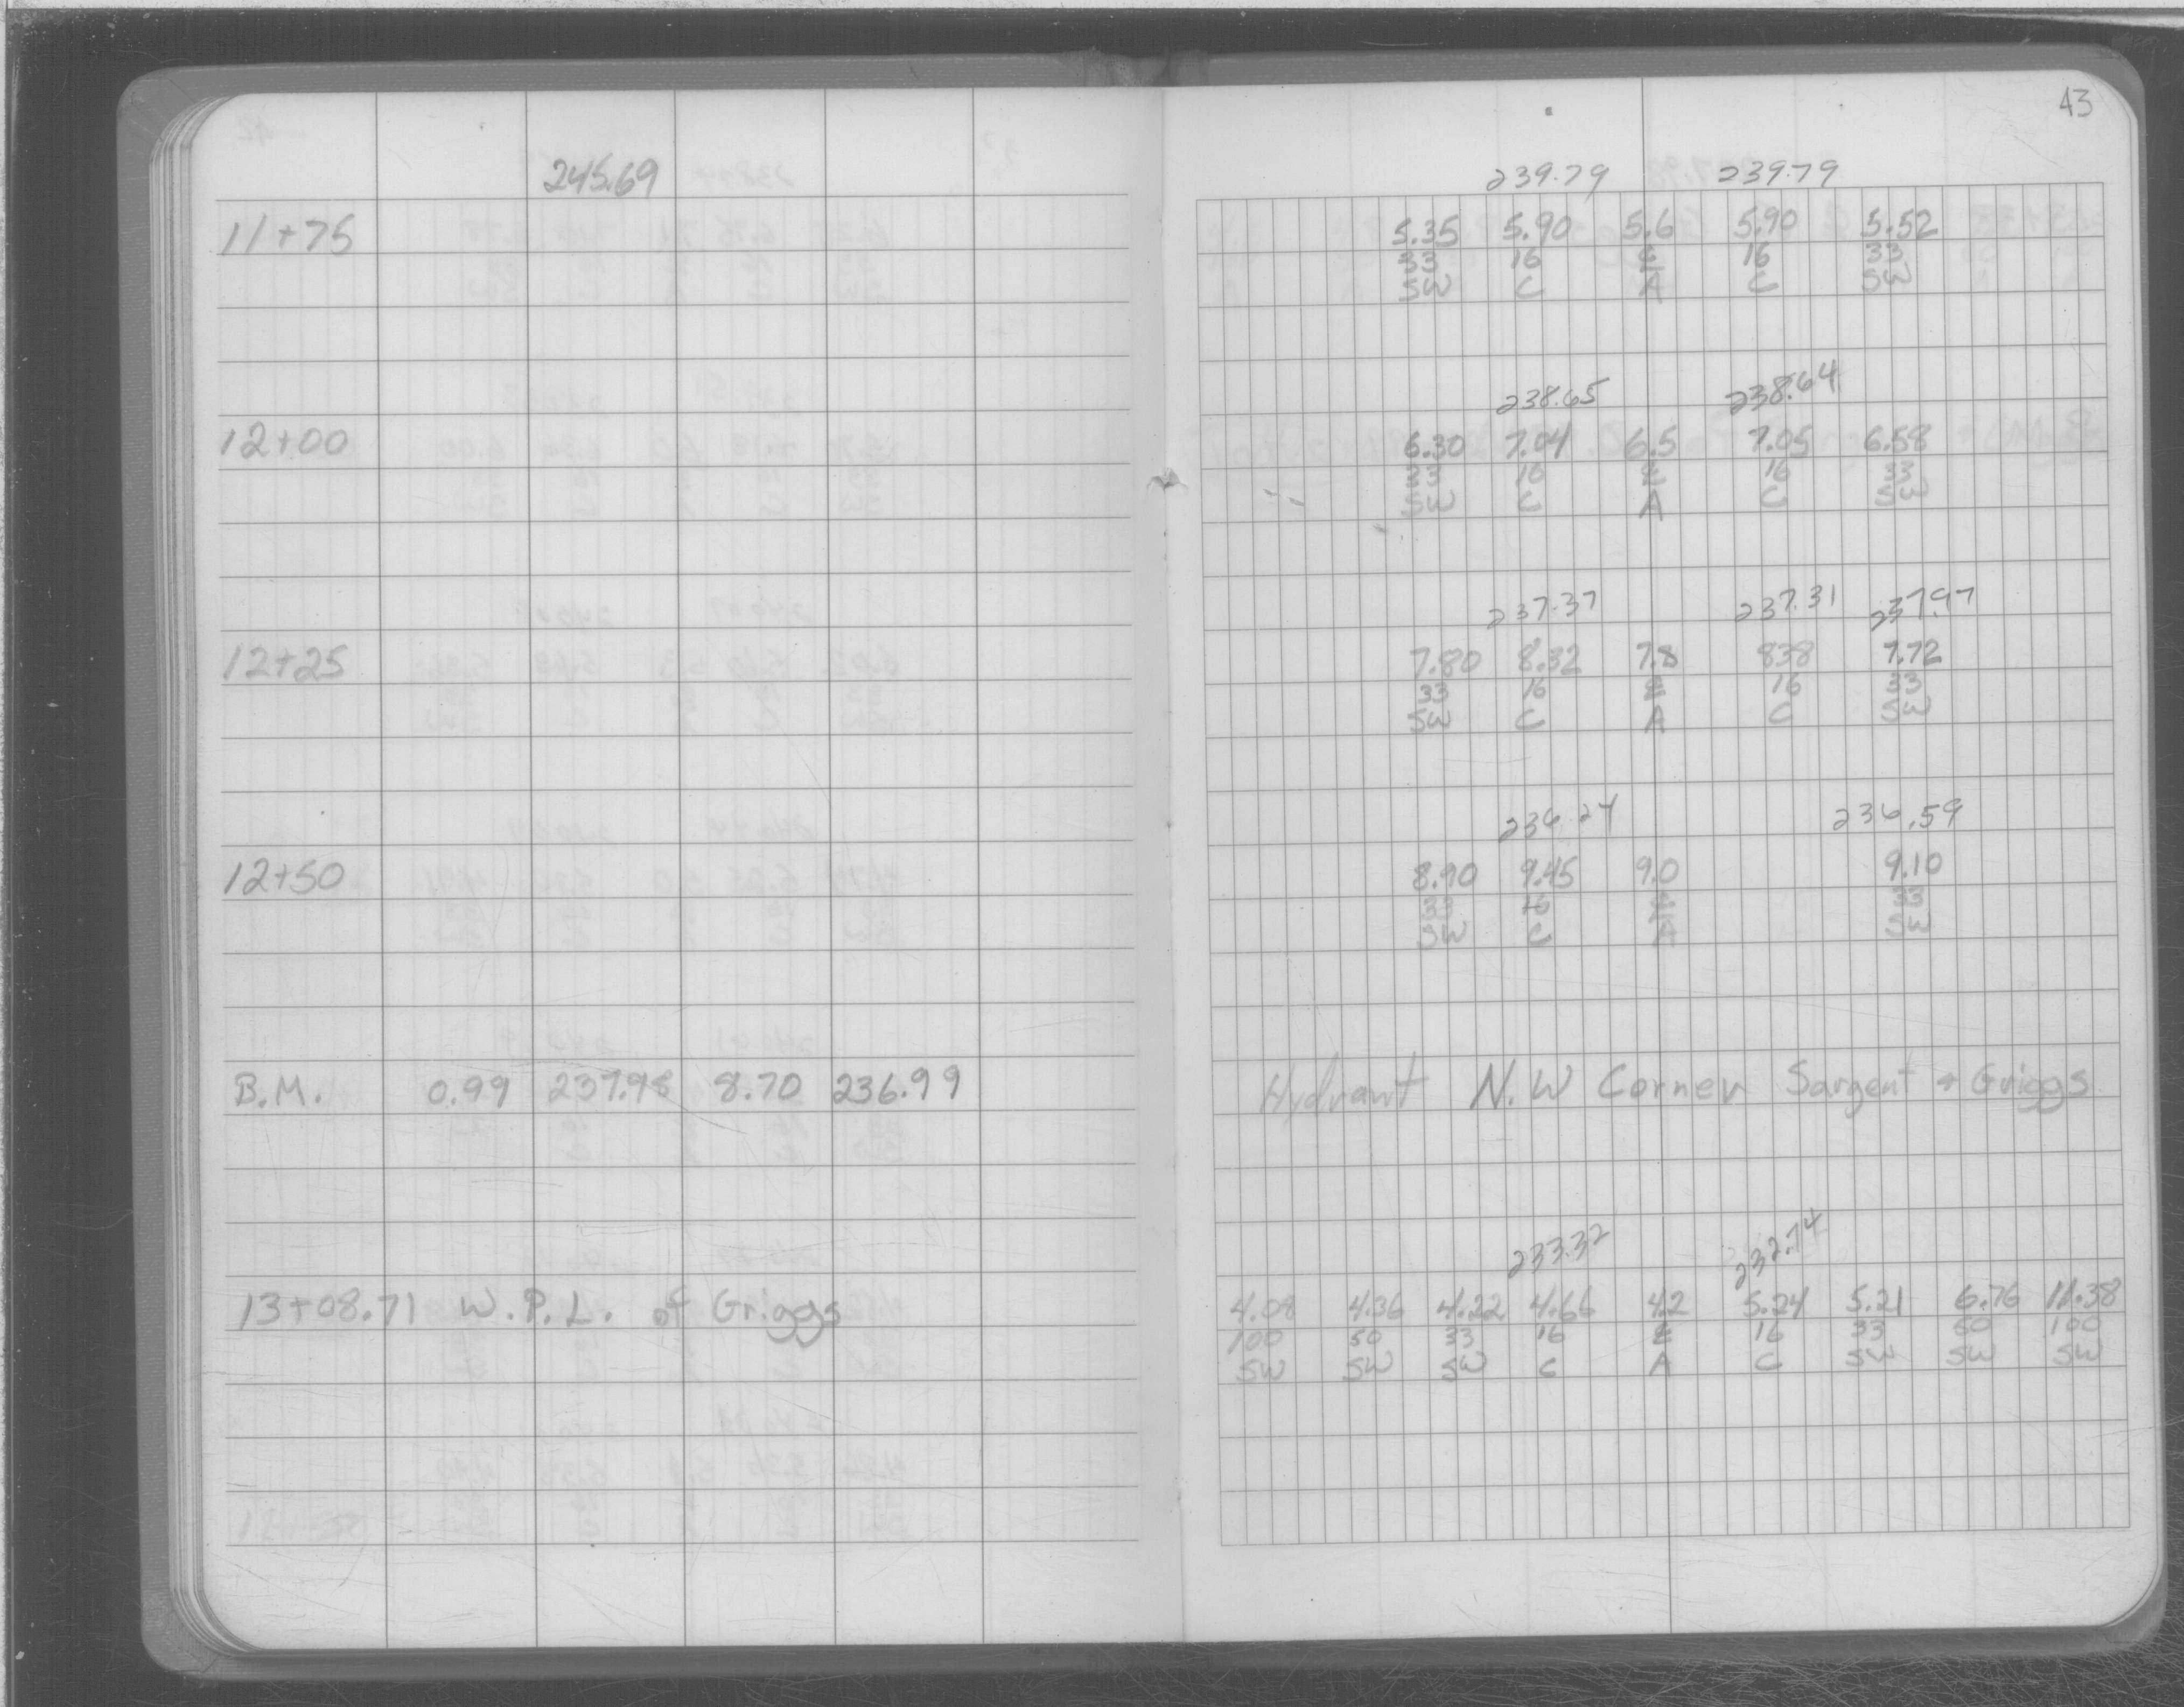 43
245.69 239.79 239.79
11+75 5.35 5.90 5.6 5.90 5.52
33 16 ℄ 16 33
SW C A C SW
238.65 238.64
12+00 6.30 7.04 6.5 7.05 6.58
33 16 ℄ 16 33
SW C A C SW
237.37 237.31 237.97
12+25 7.80 8.32 7.8 838 7.72
33 16 ℄ 16 33
SW C A C SW
236.24 236.59
12+50 8.90 9.45 9.0 9.10
33 16 ℄ 33
SW C A SW
B.M. 0.99 237.98 8.70 236.99 Hydrant N.W Corner Sargent & Griggs
233.32 232.74
13+08.71 W.P.L. of Griggs 4.08 4.36 4.22 4.66 4.2 5.24 5.21 6.76 11.38
100 50 33 16 ℄ 16 33 50 100
SW SW SW C A C SW SW SW